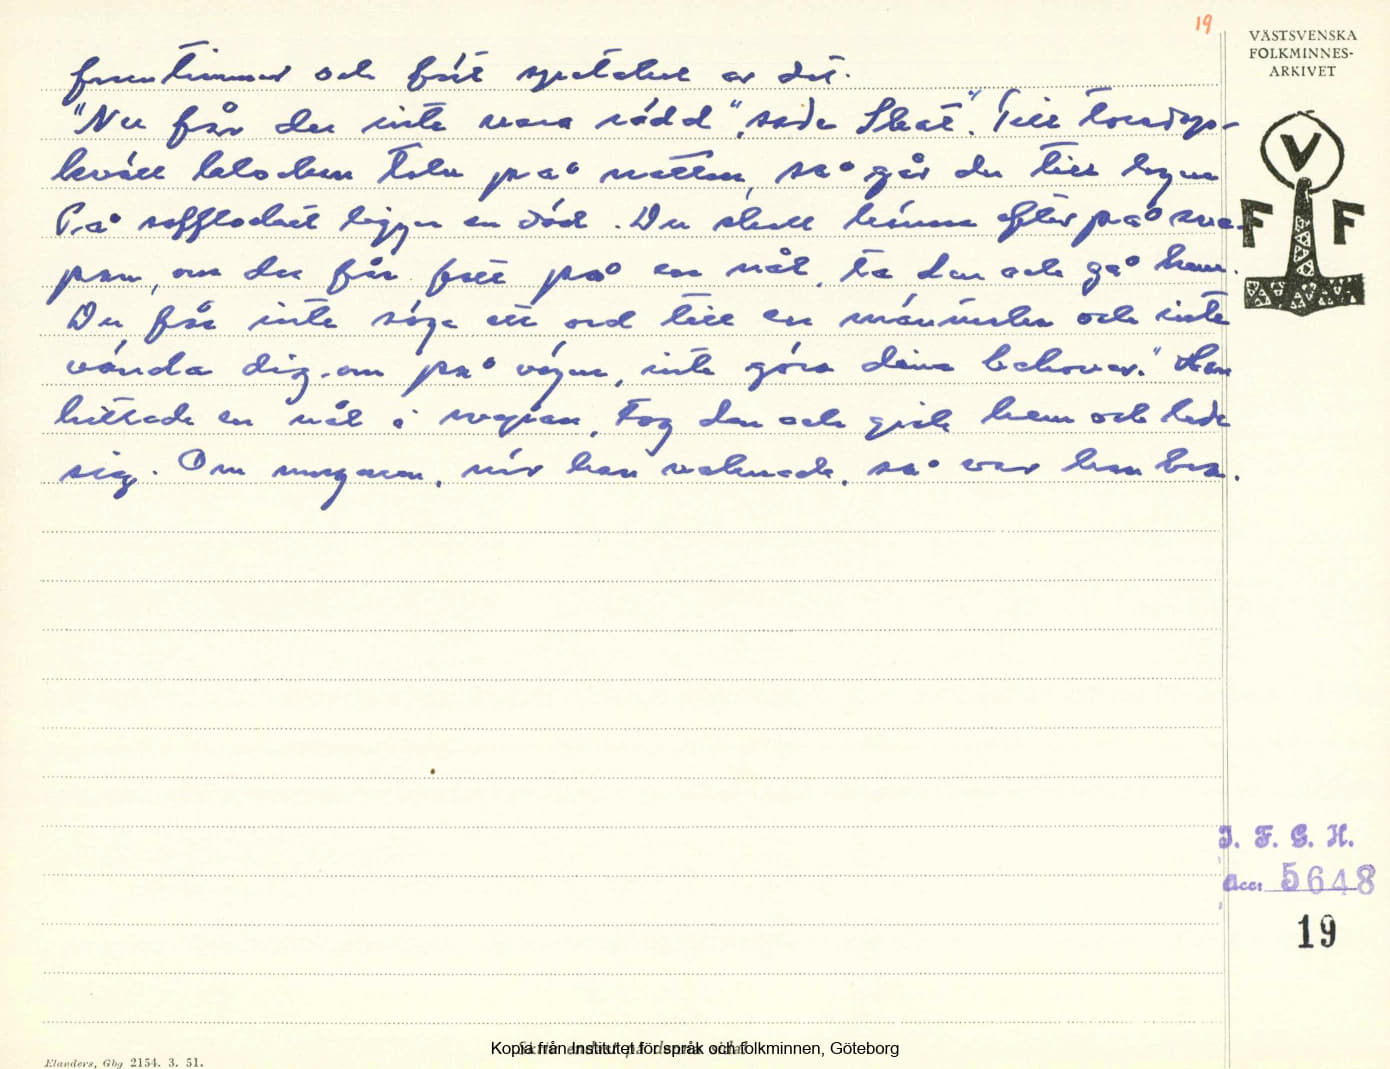 19
VÄSTSVENSKA
FOLKMINNES-
ARKIVET
V
F F
fruntimmer och fått av det.
"Nu får du inte vara rädd", sade Skat. "Till torsdags-
kväll klockan tolv på natten, så går du till
På ligger en död. Du skall känna efter på sve-
pen, om du får fatt på en nål, ta den och gå hem.
Du får inte säga ett ord till en människa och inte
vända dig om på vägen, inte göra dina behover." Han
hittade en nål i svepan, tog den och gick hem och lade
sig. Om morgonen, när han vaknade, så var han bra.
J. F. G. H.
Acc: 5648
19
Kopia från Institutet för språk och folkminnen, Göteborg
Elanders, Gbg 2154. 3. 51.